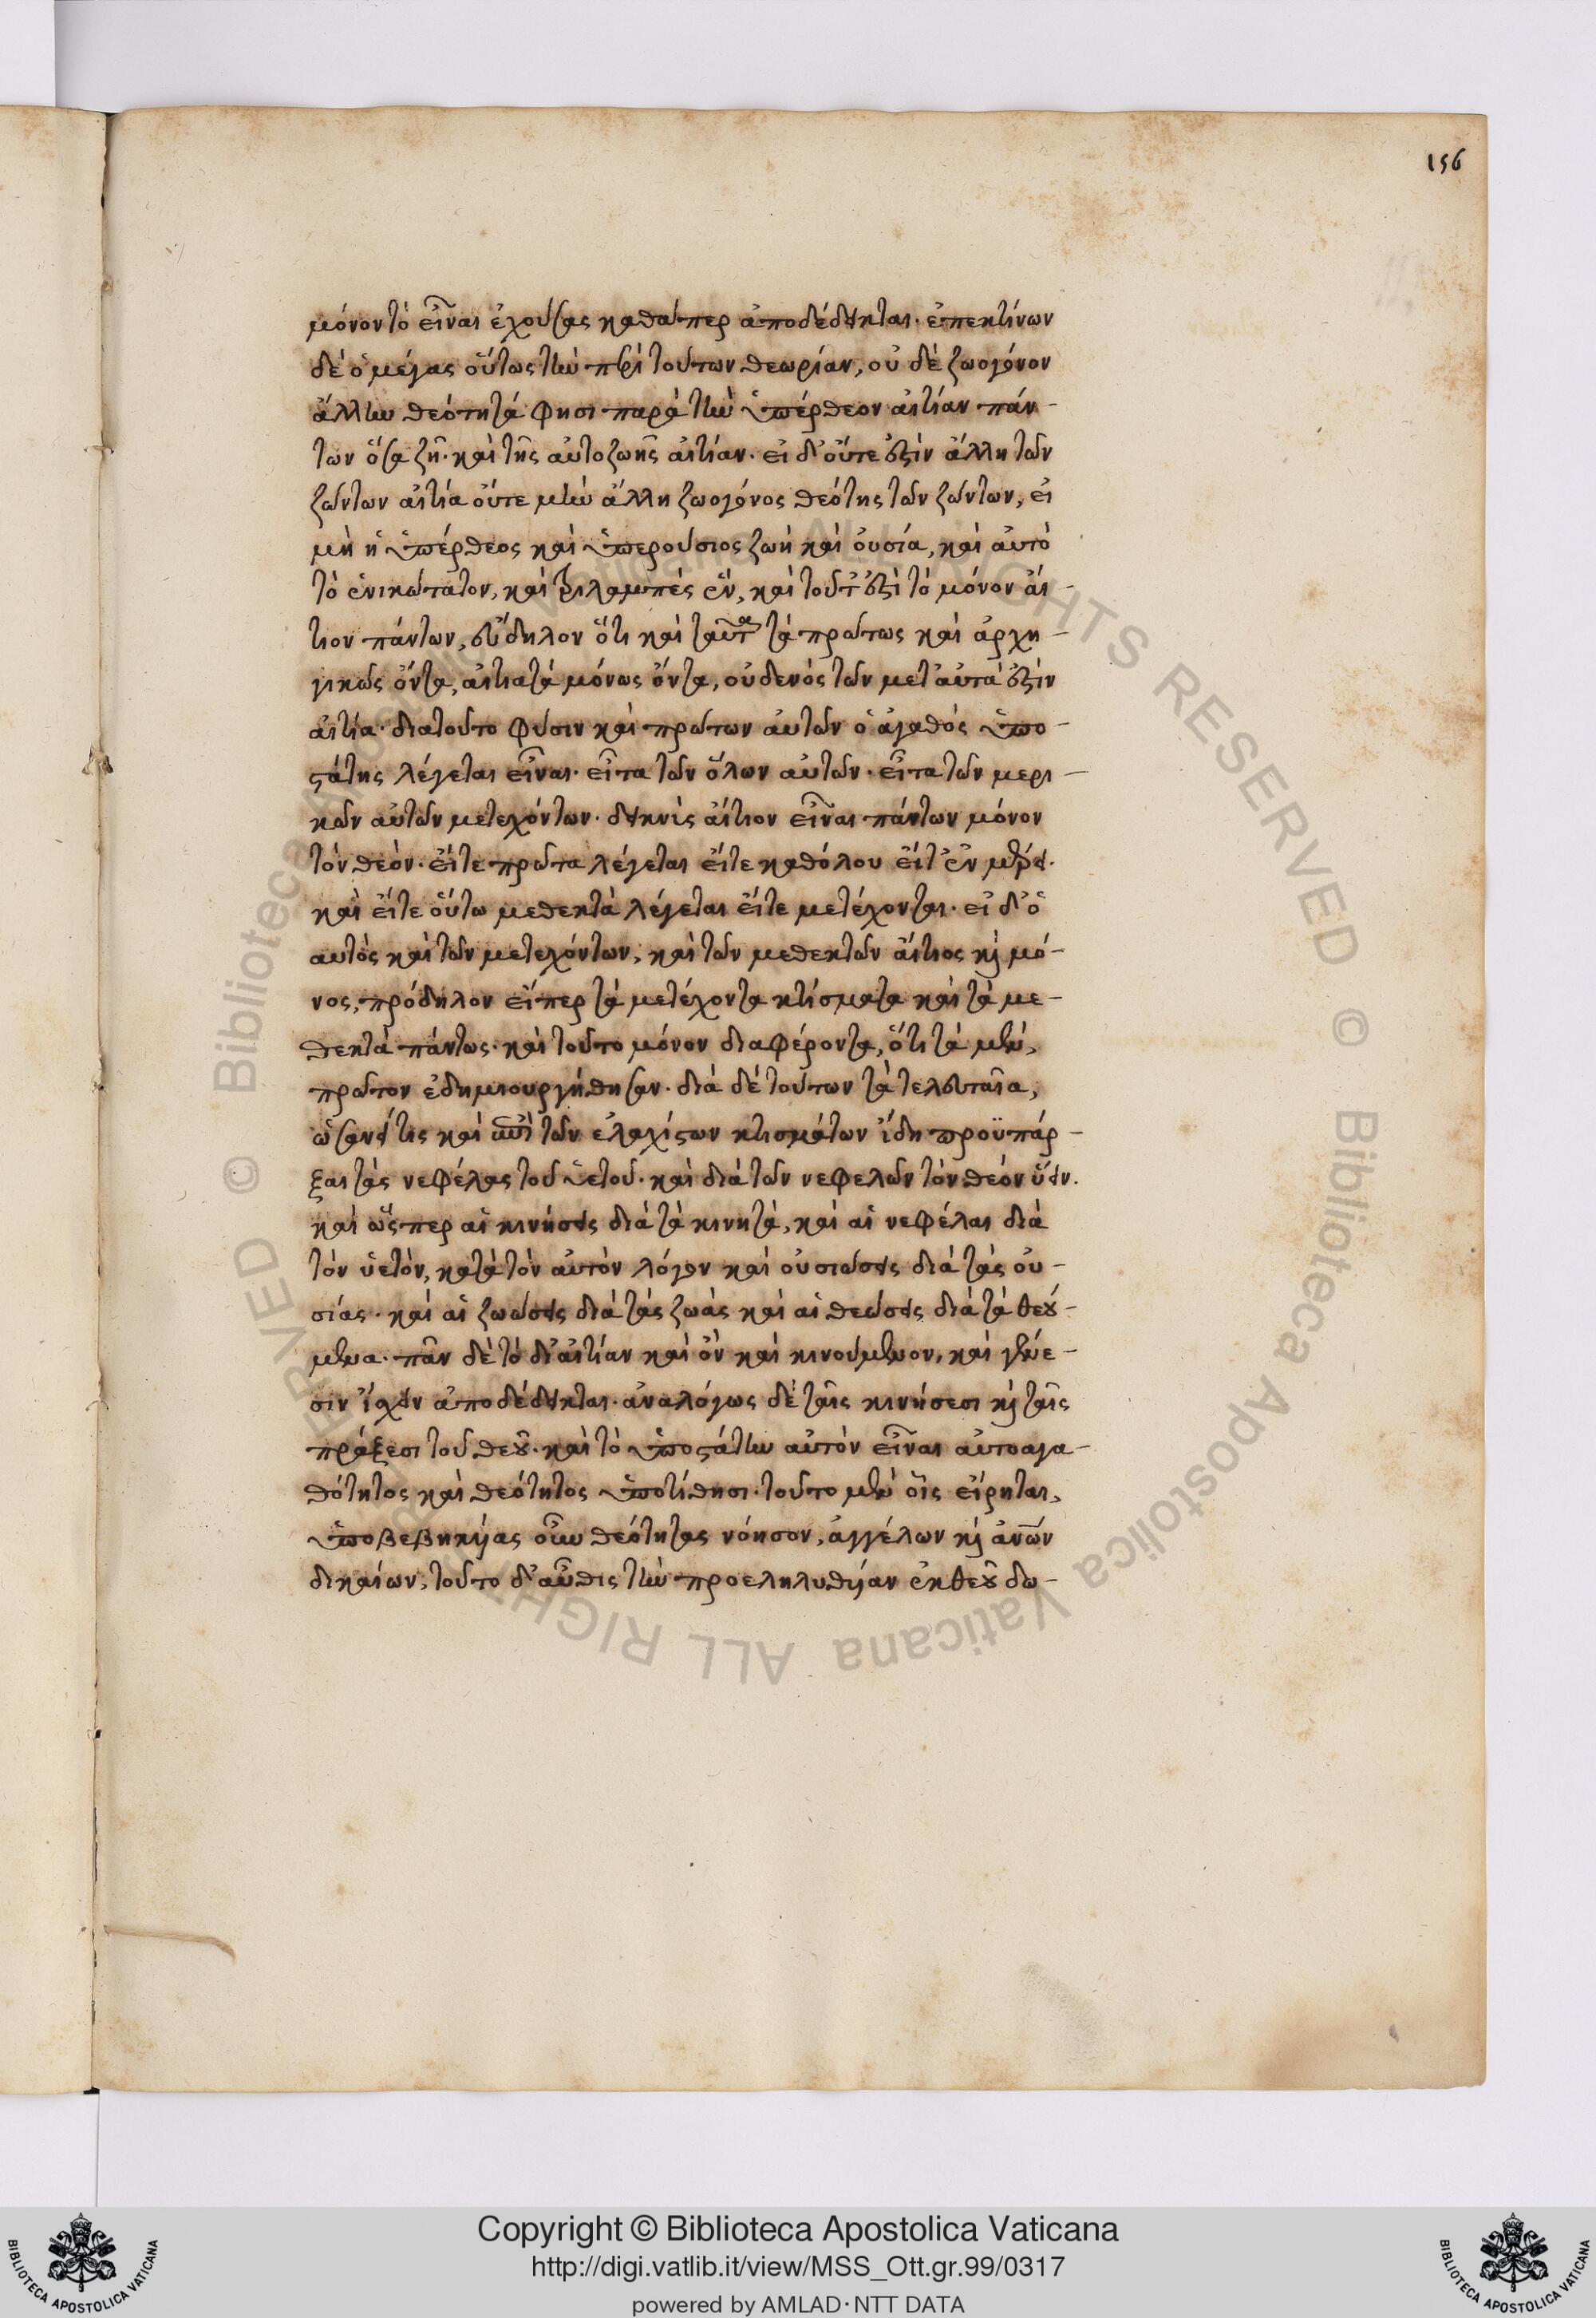 156
μόνον τὸ εἶναι ἐχούσας καθάπερ ἀποδέδεικται· ἐπεκτίνων
δὲ ὁ μέγας οὕτως τὴν περὶ τούτων θεωρίαν, οὐ δὲ ζωογόνον
ἄλλην θεότητά φησι παρὰ τὴν ὑπέρθεον αἰτίαν πάν-
των ὅσα ζῇ· καὶ τῆς αὐτοζωῆς αἰτίαν· εἰ δ' οὔτε ἐστὶν ἄλλη τῶν
ζώντων αἰτία οὔτε μὴν ἄλλη ζωογόνος θεότης τῶν ζώντων, εἰ
μὴ ἡ ὑπέρθεος καὶ ὑπερούσιος ζωὴ καὶ οὐσία, καὶ αὐτὸ
τὸ ἑνικώτατον, καὶ τριλαμπὲς ἕν, καὶ τοῦτ' ἐστὶ τὸ μόνον αἴ-
τιον πάντων, εὔδηλον ὅτι καὶ ταῦτα τὰ πρώτως καὶ ἀρχη-
γικῶς ὄντα, αἰτιατὰ μόνως ὄντα, οὐδενὸς τῶν μετ' αὐτά ἐστιν
αἰτία· διατοῦτο φύσιν καὶ πρώτων αὐτῶν ὁ ἀγαθὸς ὑπο-
στάτης λέγεται εἶναι· εἶτα τῶν ὅλων αὐτῶν· εἶτα τῶν μερι-
κῶν αὐτῶν μετεχόντων· δεικνὺς αἴτιον εἶναι πάντων μόνον
τὸν θεὸν· εἴτε πρῶτα λέγεται εἴτε καθόλου εἴτ' ἐν μέρει·
καὶ εἴτε οὕτω μεθεκτὰ λέγεται εἴτε μετέχοντα· εἰ δ' ὁ
αυτὸς καὶ τῶν μετεχόντων, καὶ τῶν μεθεκτῶν αἴτιος καὶ μό-
νος, πρόδηλον εἴπερ τὰ μετέχοντα κτίσματα καὶ τὰ με-
θεκτὰ πάντως· καὶ τοῦτο μόνον διαφέροντα, ὅτι τὰ μὲν,
πρῶτον ἐδημιουργήθησαν· διὰ δὲ τούτων τὰ τελευταῖα,
ὡσανεί τις καὶ ἐπὶ τῶν ἐλαχίστων κτισμάτων ἴδη προϋπάρ-
ξαι τὰς νεφέλας τοῦ ὑετοῦ· καὶ διὰ τῶν νεφελῶν τὸν θεὸν ὕειν.
καὶ ὥσπερ αἱ κινήσεις διὰ τὰ κινητά, καὶ αἱ νεφέλαι διὰ
τὸν ὑετὸν, κατὰ τὸν αὐτὸν λόγον καὶ οὐσιώσεις διὰ τὰς οὐ-
σίας· καὶ αἱ ζωώσεις διὰ τὰς ζωὰς καὶ αἱ θεώσεις διὰ τὰ θεού-
μενα· πᾶν δὲ τὸ δι' αἰτίαν καὶ ὂν καὶ κινούμενον, καὶ γένε-
σιν ἴσχειν ἀποδέδεικται· ἀναλόγως δὲ ταῖς κινήσεσι καὶ ταῖς
πράξεσι τοῦ θεοῦ· καὶ τὸ ὑποστάτην αὐτὸν εἶναι αὐτοαγα-
θότητος καὶ θεότητος ὑποτίθησι· τοῦτο μὲν οἷς εἴρηται,
ὑποβεβηκυίας οὖν θεότητας νόησον, ἀγγέλων καὶ ἀνῶν
δικαίων, τοῦτο δ' αὖθις τὴν προεληλυθυῖαν ἐκ θεοῦ δω-
Copyright © Biblioteca Apostolica Vaticana
http://digi.vatlib.it/view/MSS_Ott.gr.99/0317
powered by AMLAD·NTT DATA